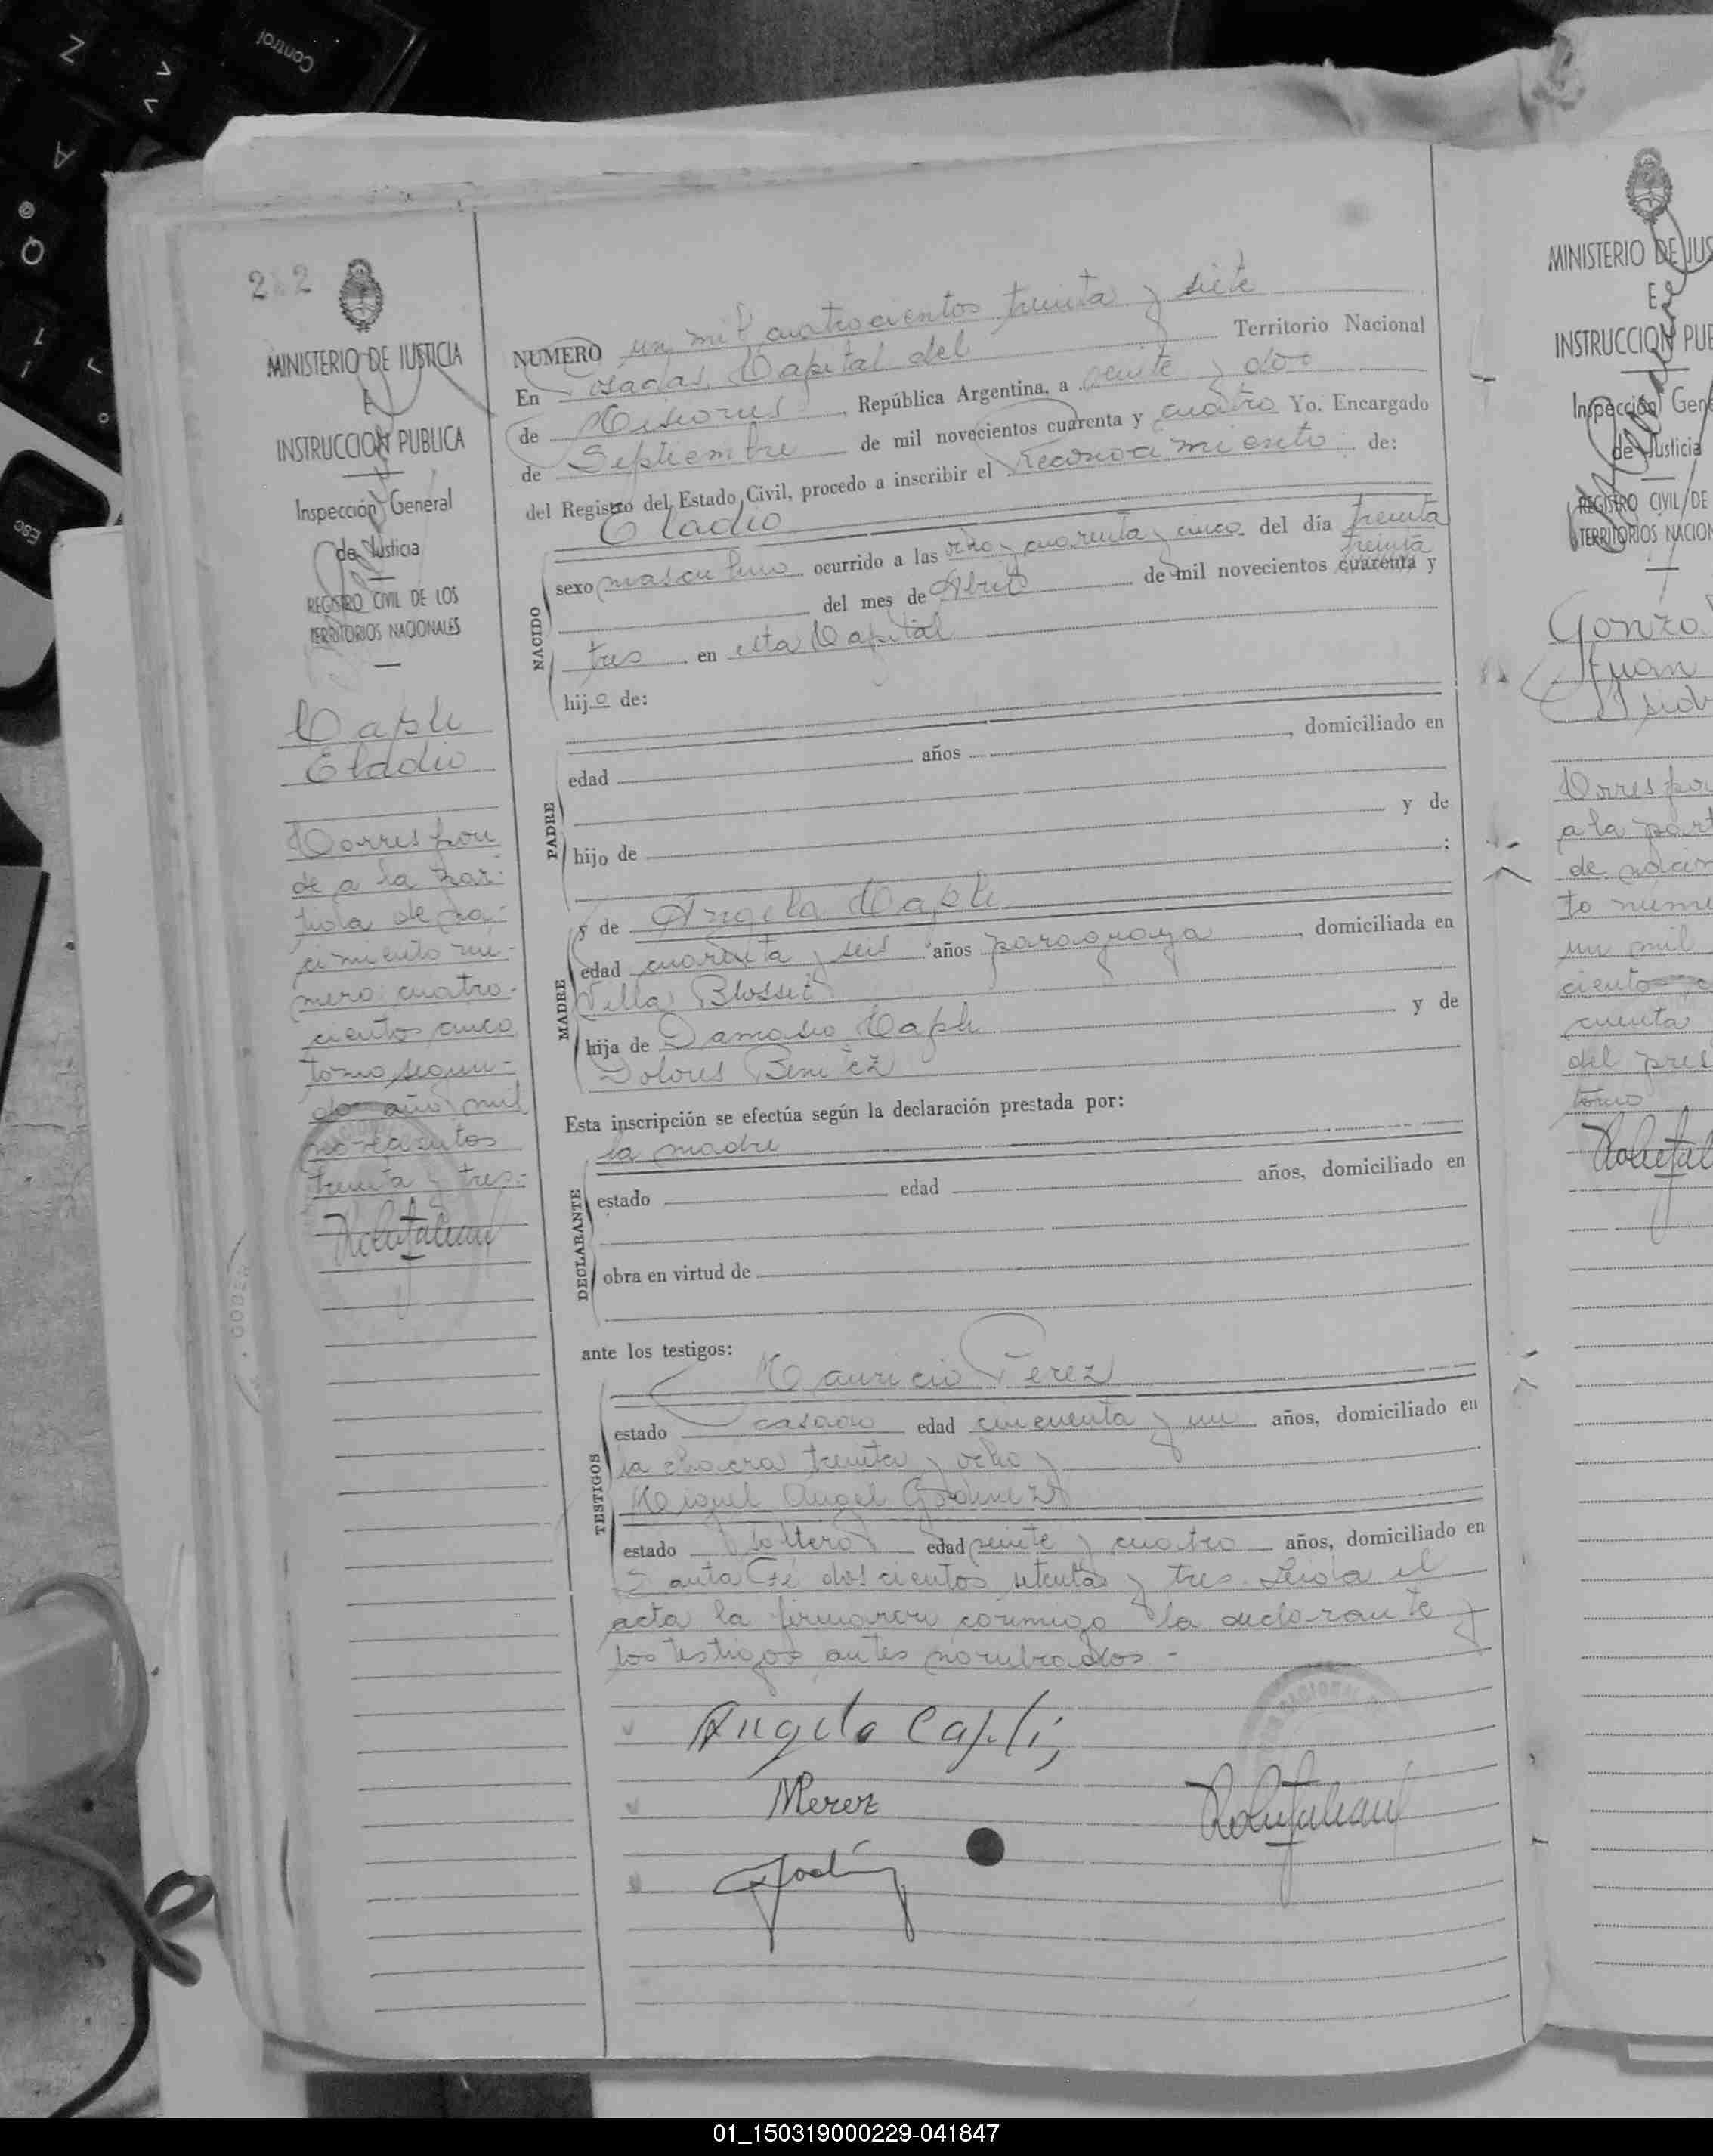 Control
Z
A
Q
Esc
212
MINISTERIO DE JUSTICIA
E
INSTRUCCION PUBLICA
Inspección General
de Justicia
REGISTRO CIVIL DE LOS
TERRITORIOS NACIONALES
Eladio
Correspon
de a la par-
tida de na-
cimiento nú-
mero cuatro-
cientos cinco
tomo segun-
do año mil
novecientos
treinta y tres.-
NUMERO un mil cuatrocientos treinta y siete
En Posadas, Capital del Territorio Nacional
de Misiones, República Argentina, a veinte y dos
de Septiembre de mil novecientos cuarenta y cuatro Yo. Encargado
del Registro del Estado Civil, procedo a inscribir el Reconocimiento de:
Eladio
sexo masculino ocurrido a las ocho y cuarenta y cinco del día treinta
del mes de Abril de mil novecientos cuarenta y
treinta
tres en esta Capital
NACIDO
hijo de:
edad años , domiciliado en
PADRE
hijo de y de
;
y de Angela
edad cuarenta y seis años paraguaya, domiciliada en
Villa Blosset
MADRE
hija de Damasio y de
Dolores Benitez
Esta inscripción se efectúa según la declaración prestada por:
la madre
estado edad años, domiciliado en
DECLARANTE
obra en virtud de
ante los testigos:
Mauricio Perez
estado casado edad cincuenta y un años, domiciliado en
la chacra treinta y ocho y
TESTIGOS
Miguel Angel Godinez
estado soltero edad veinte y cuatro años, domiciliado en
Santa Fé doscientos setenta y tres. Leida el
acta la firmaron conmigo la declarante y
los testigos antes nombrados.-
Angela
MPerez
MINISTERIO DE JUS
E
INSTRUCCION PUB
Inspección Gene
de Justicia
REGISTRO CIVIL DE
TERRITORIOS NACION
Juan
Correspon
a la part
de nacim
to núme
un mil
ciento c
cuenta
del pres
tomo
01_150319000229-041847